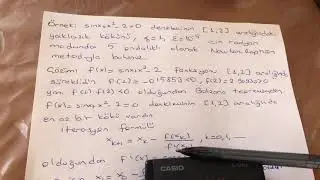 Örnek: sinx+x²-2=0 denkleminin [1,2] aralığındaki
yaklaşık kökünü, için radyan
modunda 5 ondalıklı olarak Newton-Raphson
metoduyla bulunuz.
Çözüm: f(x)=sinx+x²-2 fonksiyonu [1,2] aralığında
süreklidir. f(1)=-0.1585<0, f(2)=2.9093>0
yani f(1).f(2)<0 olduğundan Bolzano teoreminden
f(x)=sinx+x²-2=0 denkleminin [1,2] aralığında
en az bir kökü vardır.
İterasyon formülü
xₖ₊₁ = xₖ - f(xₖ)/f'(xₖ), k=0,1,...
olduğundan f'(x)
CASIO